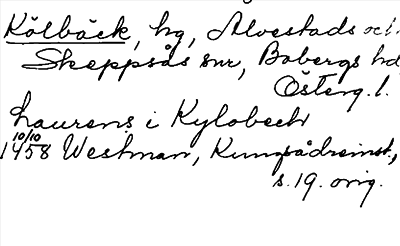 Kölbäck, hg, Alvestads och
Skeppsås snr, Bobergs hd,
Österg. l.
Laurens i Kylobech
10/10
1458 Westman, Kungsådreinst.,
s. 19. orig.